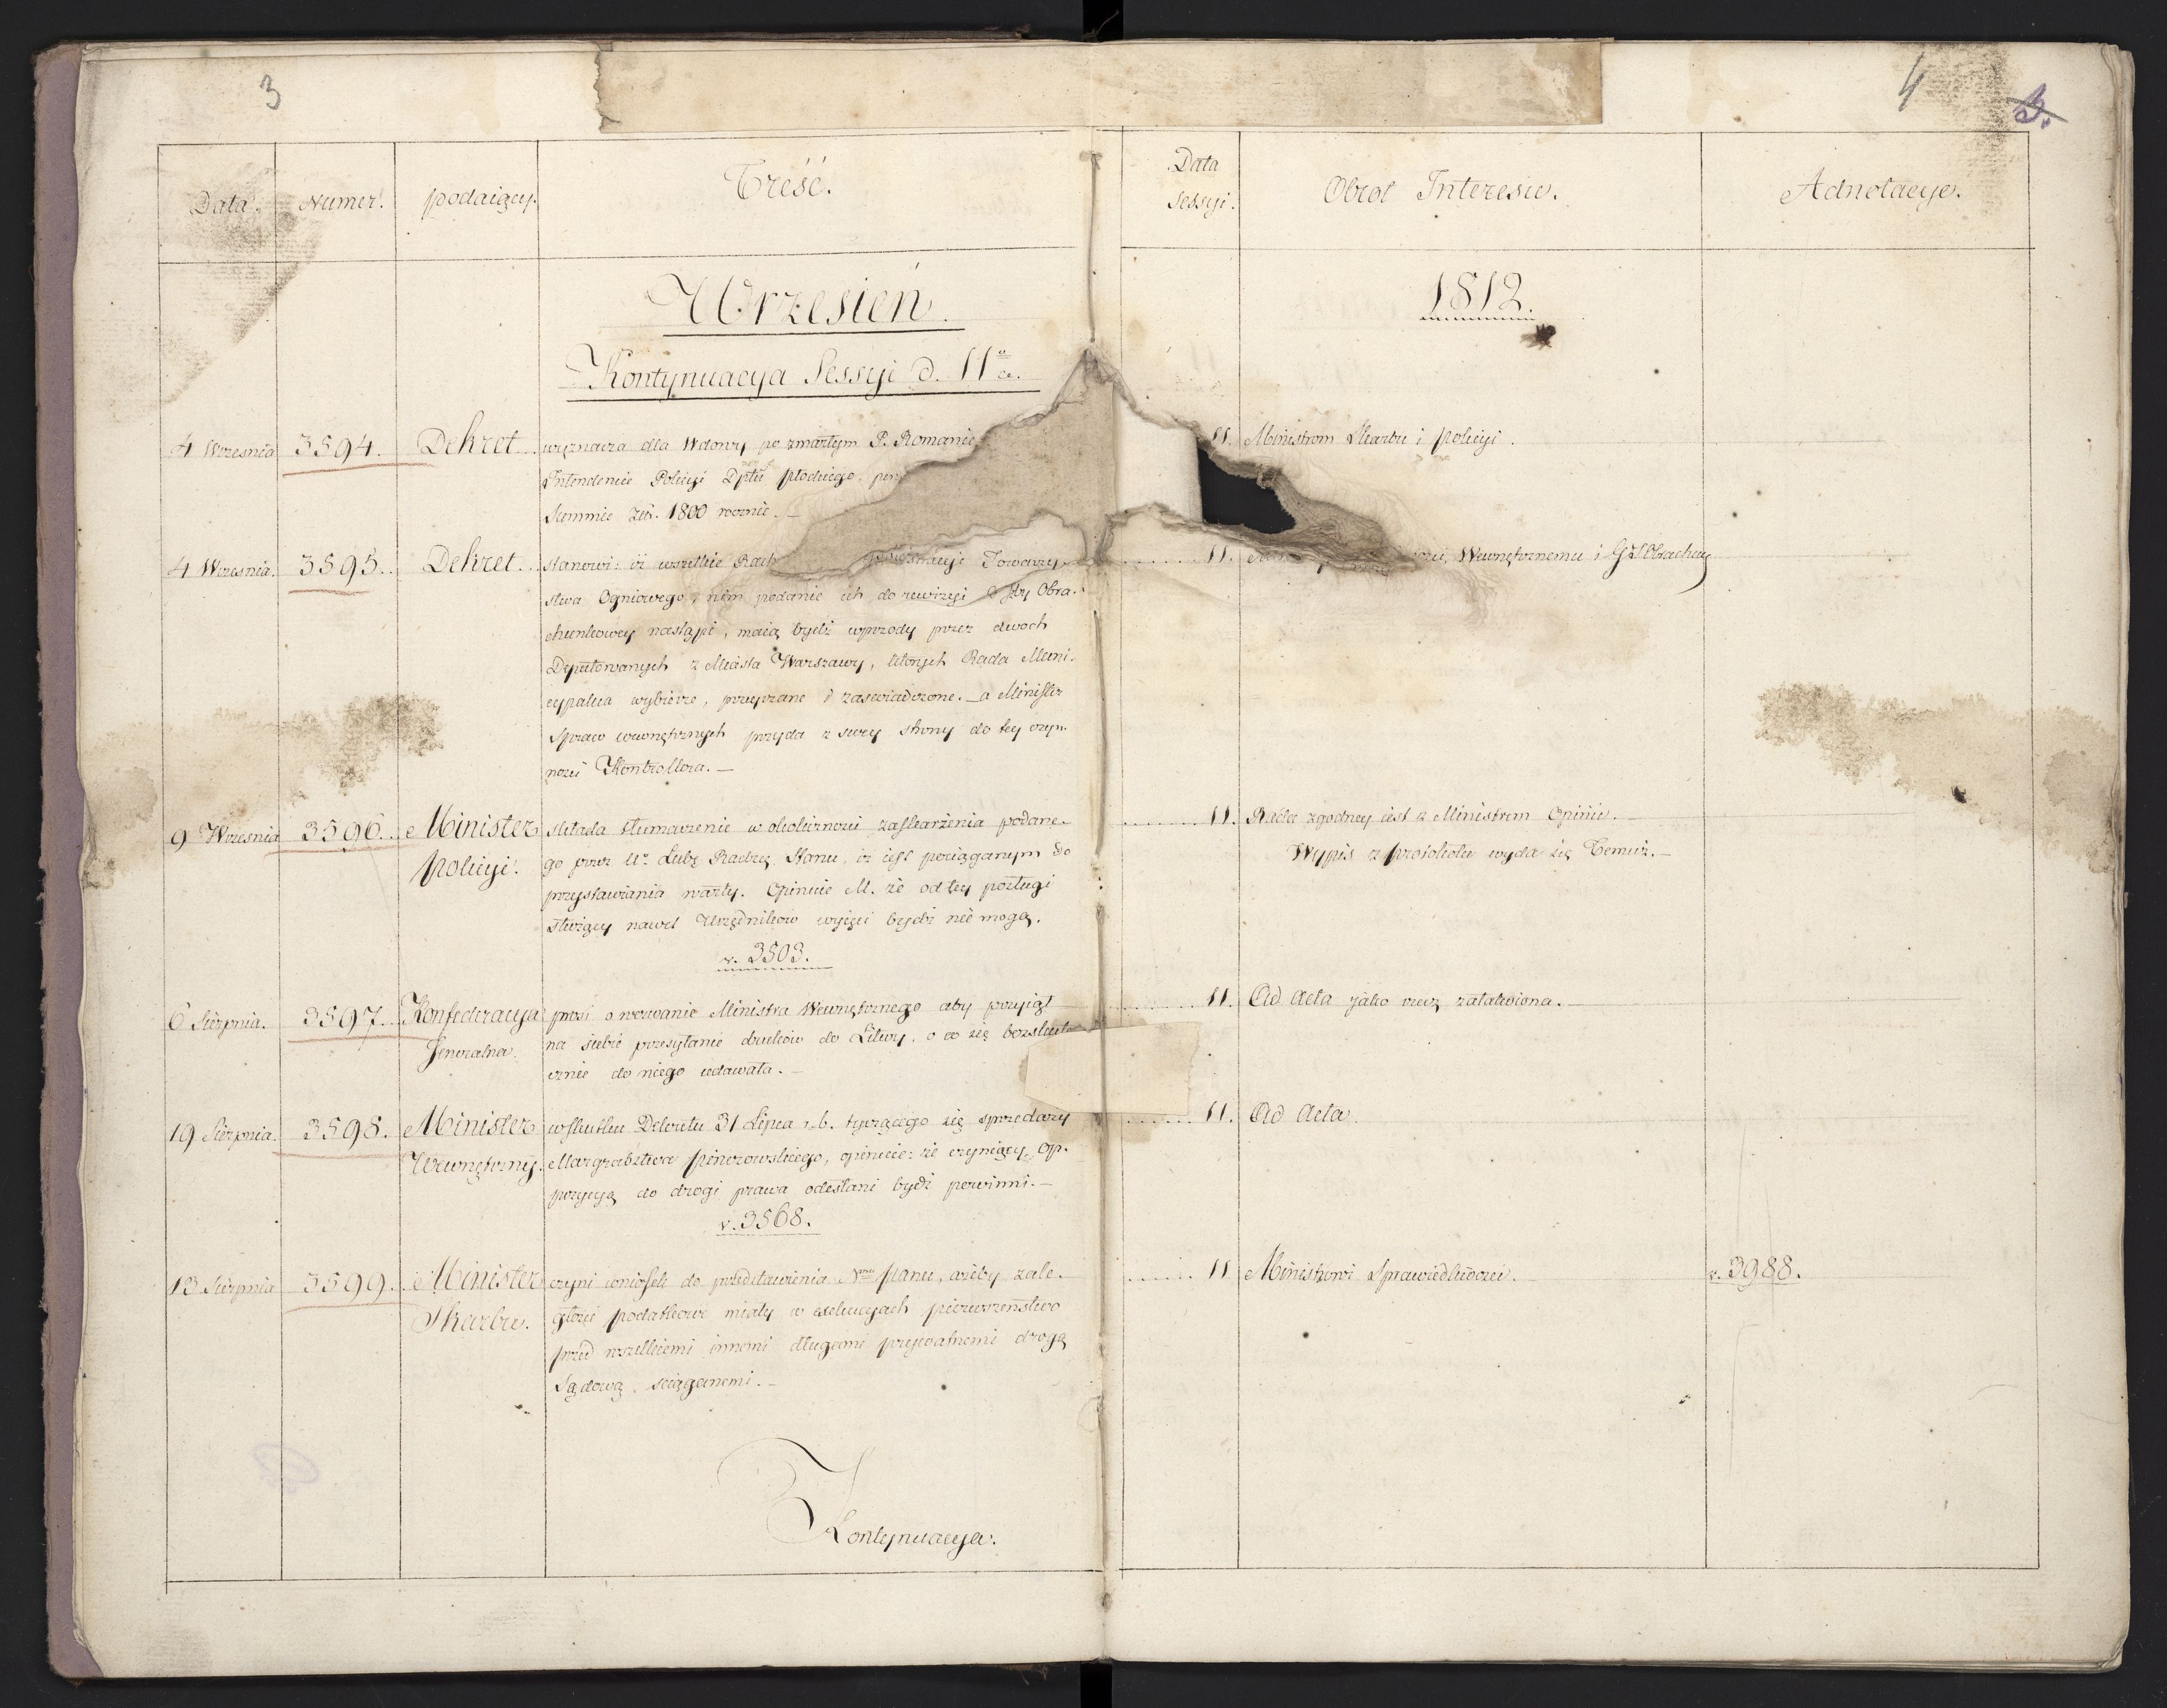 3
4
Data.
Numer.
podaiący.
Treść.
Data
Sessyi.
Obrot Interesu.
Adnotacye.
Wrzesień.
1812.
Kontynuacya Sessyi d. 11
4 Wrzesnia 3594. Dekret wyznacza dla Wdowy po zmarłym P. Romanie 11. Ministrom Skarbu i Policyi.
Intendencie Policyi Dpttu Płockiego.
Summie Złł. 1800 rocznie. —
4 Wrzesnia. 3595. Dekret. stanowi: iż wszelkie Rach Towarzy- 11. Wewnętrznemu i Obrachuy
stwa Ogniowego, nim podanie ich do rewizyi Obra-
chunkowey nastąpi, maią bydź wprzody przez dwoch
Deputowanych z Miasta Warszawy, ktorych Rada Muni-
cypalna wybierze, przeyrzane i zaswiadczone. — a Minister
Spraw wewnętrznych przyda z swey strony do tey czyn-
ności Kontrollera. —
9 Wrzesnia 3596. Minister składa tłumaczenie w okoliczności zaskarżenia podane- 11. Rada zgodney iest z Ministrem Opinii. —
Policyi. go przez Ur. Lubę Radzcę Stanu, iż iest pociąganym do Wypis z protokołu wyda się Temuż. —
przystawiania warty. Opiniuie M. że od tey posługi
służący nawet Urzędnikow wyięci bydź nie mogą.
v. 3503.
6 Sierpnia. 3597. Konfederacya prosi o wezwanie Ministra Wewnętrznego aby przyiął 11. Ad Acta jako rzecz załatwiona. —
Jeneralna. na siebie przesyłanie drukow do Litwy, o co się bezskute-
cznie do niego udawała. —
19 Sierpnia. 3598. Minister wskutku Dekretu 31 Lipca r. b. tyczącego się sprzedaży 11. Ad Acta.
Wewnętrzny. Margrabstwa Pinczowskiego, opiniuie: że czyniący Op-
pozycyą do drogi prawa odesłani bydź powinni. —
v. 3568.
13 Sierpnia 3599. Minister czyni wniosek do przedstawienia Panu, ażeby zale- 11 Ministrowi Sprawiedliwości. v. 3988.
Skarbu. głości podatkowe miały w exekucyach pierwszeństwo
przed wszelkiemi innemi długami prywatnemi drogą
Sądową, sciąganemi. —
Kontynuacya.